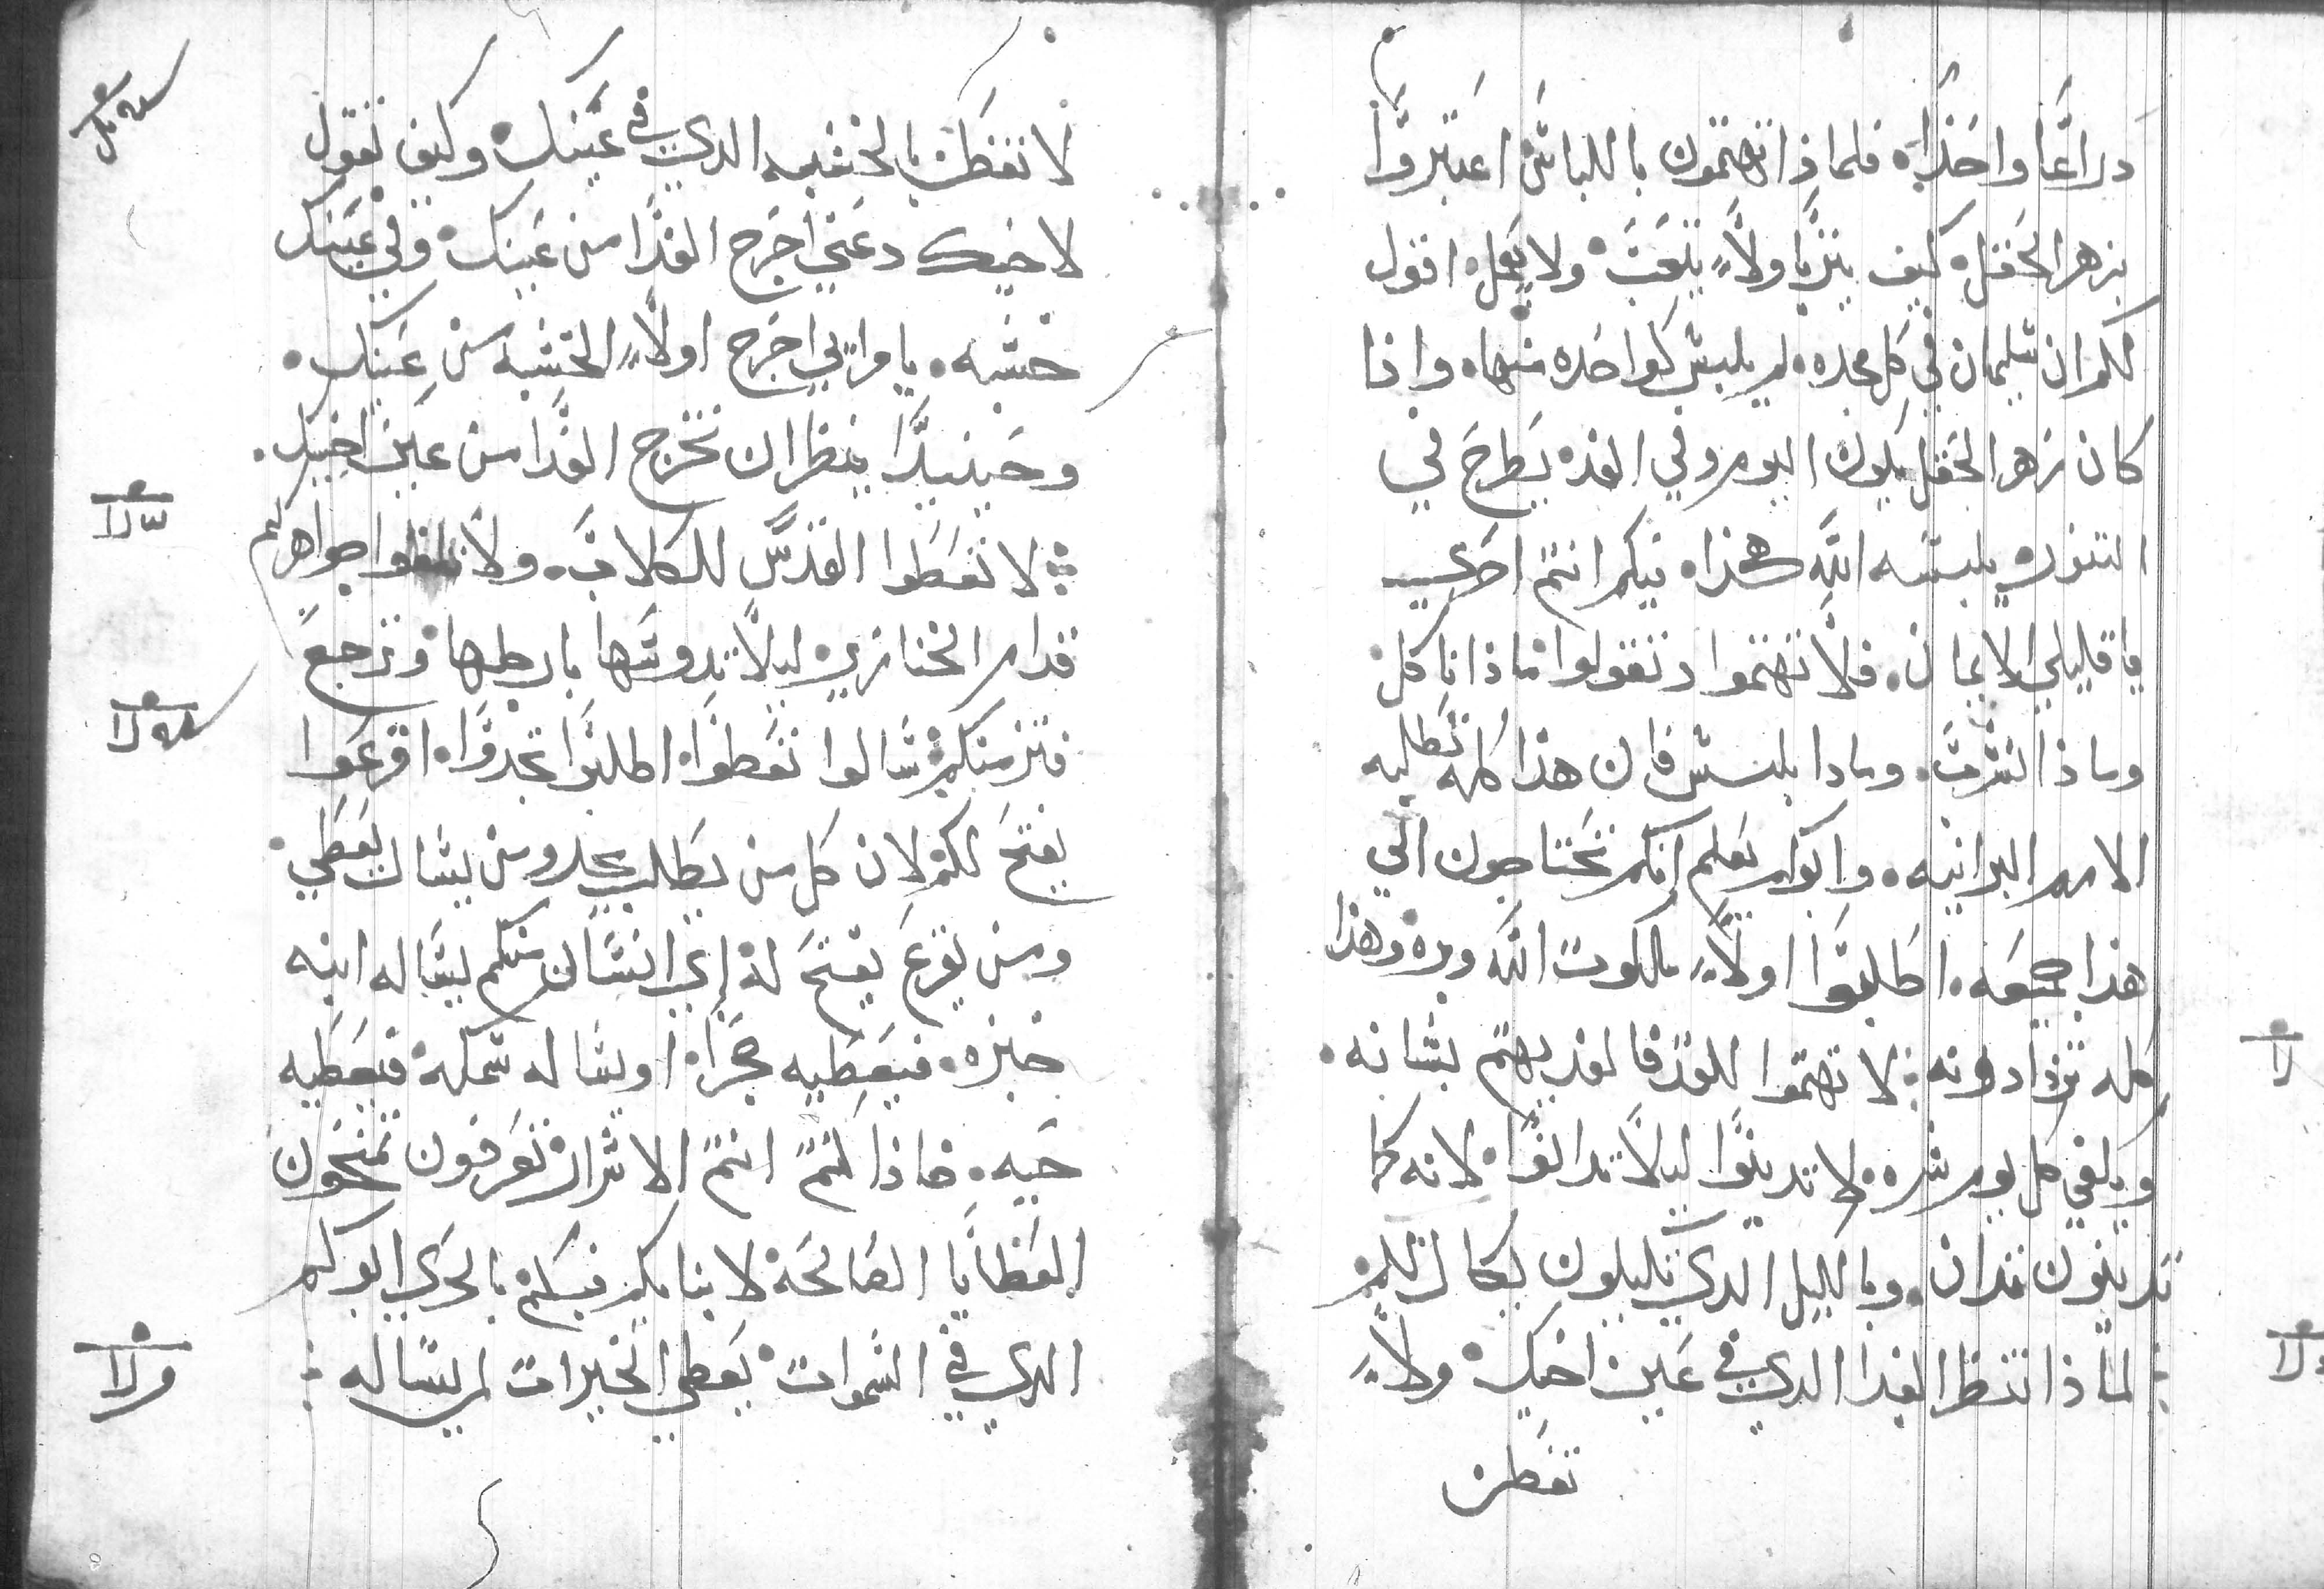 دراعًا واحدًا. فلماذا تهتمون باللباس اعتبروا
بزهر الحقل. كيف يتربا ولا يتعب. ولا يعمل. اقول
لكم ان سليمان في كل مجده. لم يلبس كواحده منها. واذا
كان زهر الحقل يكون اليوم وفي الغد. يطرح في
التنور. يلبسه الله هكذا. فبكم انتم احري
يا قليلي الايمان. فلا تهتموا وتقولوا ماذا ناكل
وماذا نشرب. وماذا نلبس فان هذا كله تطلبه
الامم البرانيه. وابوكم يعلم انكم تحتاجون الي
هذا جميعه. اطلبوا اولاً ملكوت الله وبره وهذا
كله تزادونه : لا تهتموا للغد فالغد يهتم بشانه.
ويكفي كل يوم شره. لا تدينوا ليلا تدانوا. لانه كما
تدينون تدان. وبالكيل الدي تكيلون يكال لكم
: لماذا تنظر القدا الدي في عين اخيك. ولا
تفطن
لا تفطن بالخشبه الدي في عينك. وكيف تقول
لاخيك دعني اخرج القدا من عينك. وفي عينك
خشبه. يا مرايي اخرج اولاً الخشبه من عينك.
وحينيدًا ينظر ان تخرج القدا من عين اخيك.
: لا تعطوا القدس للكلاب. ولا تلقوا جواهركم
قدام الخنازير. ليلا تدوسها بارجلها. وترجع
فتزمنكم. سالوا تعطوا. اطلبوا تجدوا. اقرعوا
يفتح لكم. لان كل من يطلب يجد ومن يسال يعطي.
ومن يقرع يفتح له. اي انسان منكم يساله ابنه
خبزه. فيعطيه حجرًا. او يساله سمكه. فيعطيه
حيه. فاذا كنتم انتم الاشرار تعرفون تمنحون
العطايا الصالحه لابنايكم فبكم بالحري ابوكم
الدي في السموات. يعطي الخيرات لمن يساله :